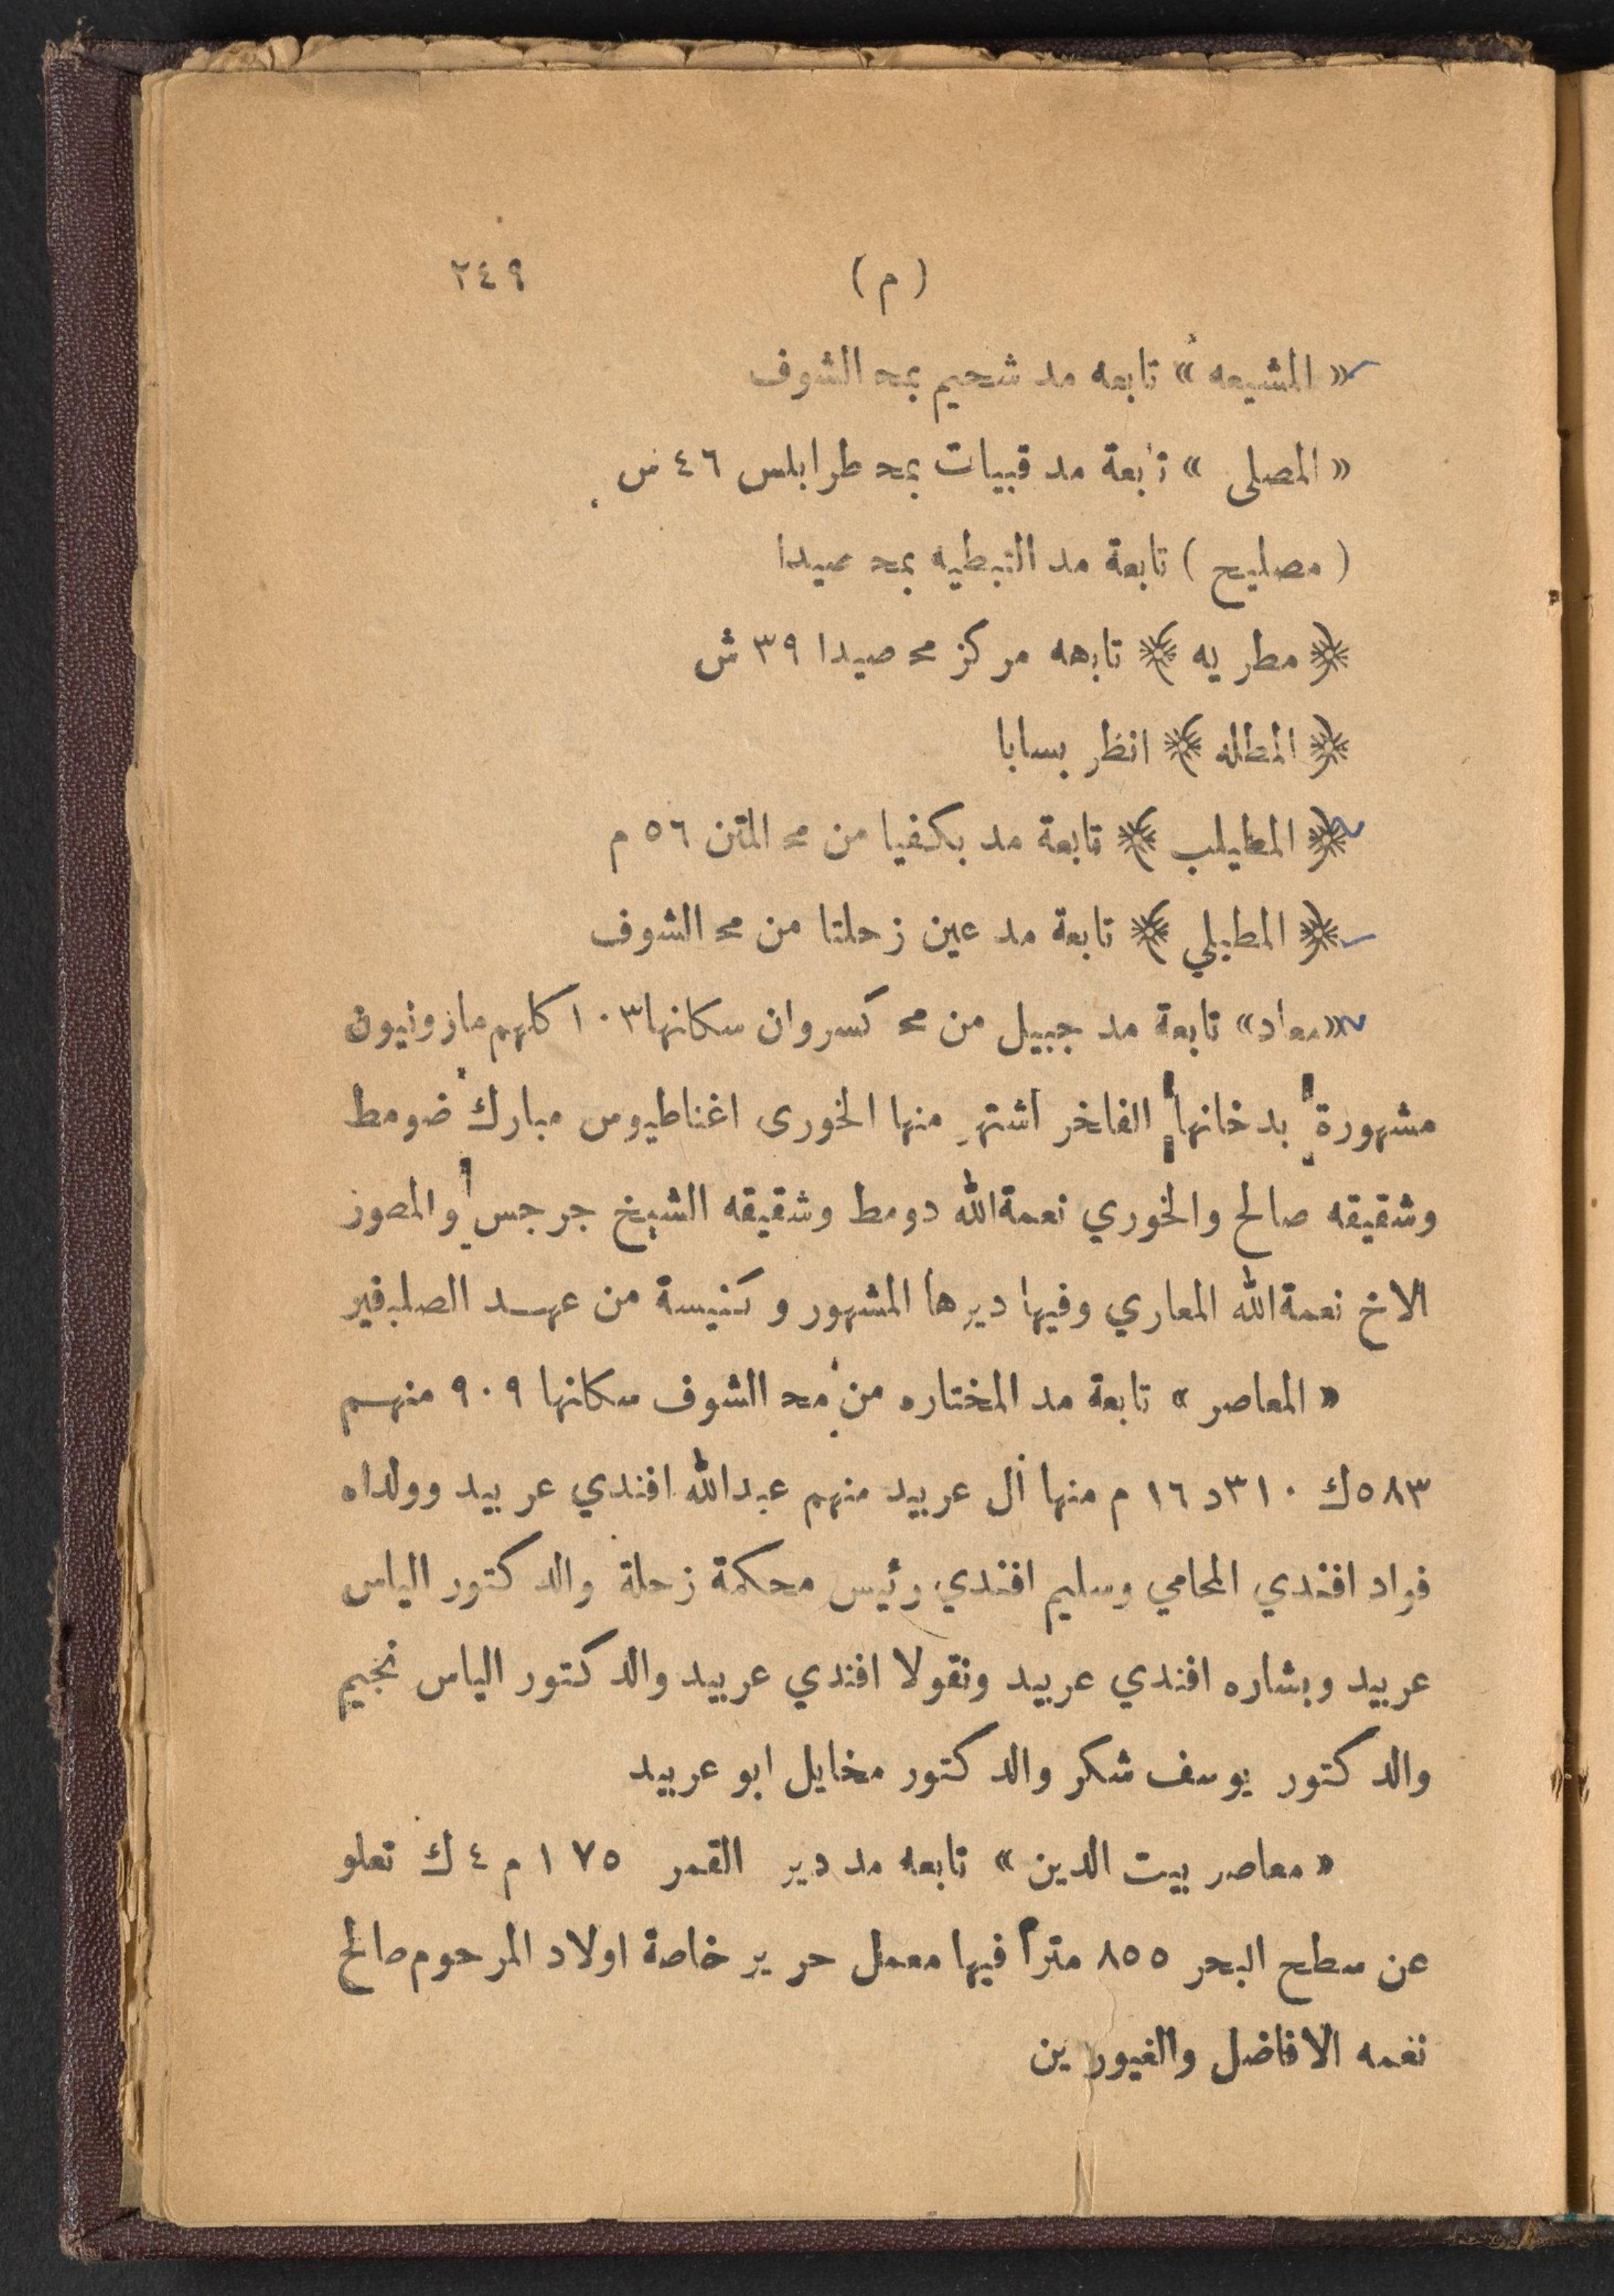 (م) ٢٤٩
« المشيعه » تابعه مد شحيم بمحـ الشوف
« المصلى » تابعة مد قبيات بمحـ طرابلس ٤٦ س
( مصليح ) تابعة مد النبطيه بمحـ صيدا
﴿ مطريه ﴾ تابعه مركز محـ صيدا ٣٩ ش
﴿ المطله ﴾ انظر بسابا
﴿ المطيلب ﴾ تابعة مد بكفيا من محـ المتن ٥٦ م
﴿ المطيلي ﴾ تابعة مد عين زحلتا من محـ الشوف
«معاد» تابعة مد جبيل من محـ كسروان سكانها ١٠٣ كلهم مارونيون
مشهورة بدخانها الفاخر اشتهر منها الخورى اغناطيوس مبارك ضومط
وشقيقه صالح والخوري نعمةالله دومط وشقيقه الشيخ جرجس والمصور
الاخ نعمةالله المعاري وفيها ديرها المشهور وكنيسة من عهد الصلبيين
« المعاصر » تابعة مد المختاره من محـ الشوف سكانها ٩٠٩ منهم
٥٨٣ك ٣١٠د ١٦ م منها أل عربيد منهم عبدالله افندي عربيد وولداه
فواد افندي المحامي وسليم افندي رئيس محكمة زحلة والدكتور الياس
عربيد وبشاره افندي عربيد ونقولا افندي عربيد والدكتور الياس نجيم
والدكتور يوسف شكر والدكتور مخايل ابو عربيد
« معاصر بيت الدين » تابعه مد دير القمر ١٧٥ م ٤ ك تعلو
عن سطح البحر ٨٥٥ متراً فيها معمل حرير خاصة اولاد المرحوم صالح
نعمه الافاضل والغيورين